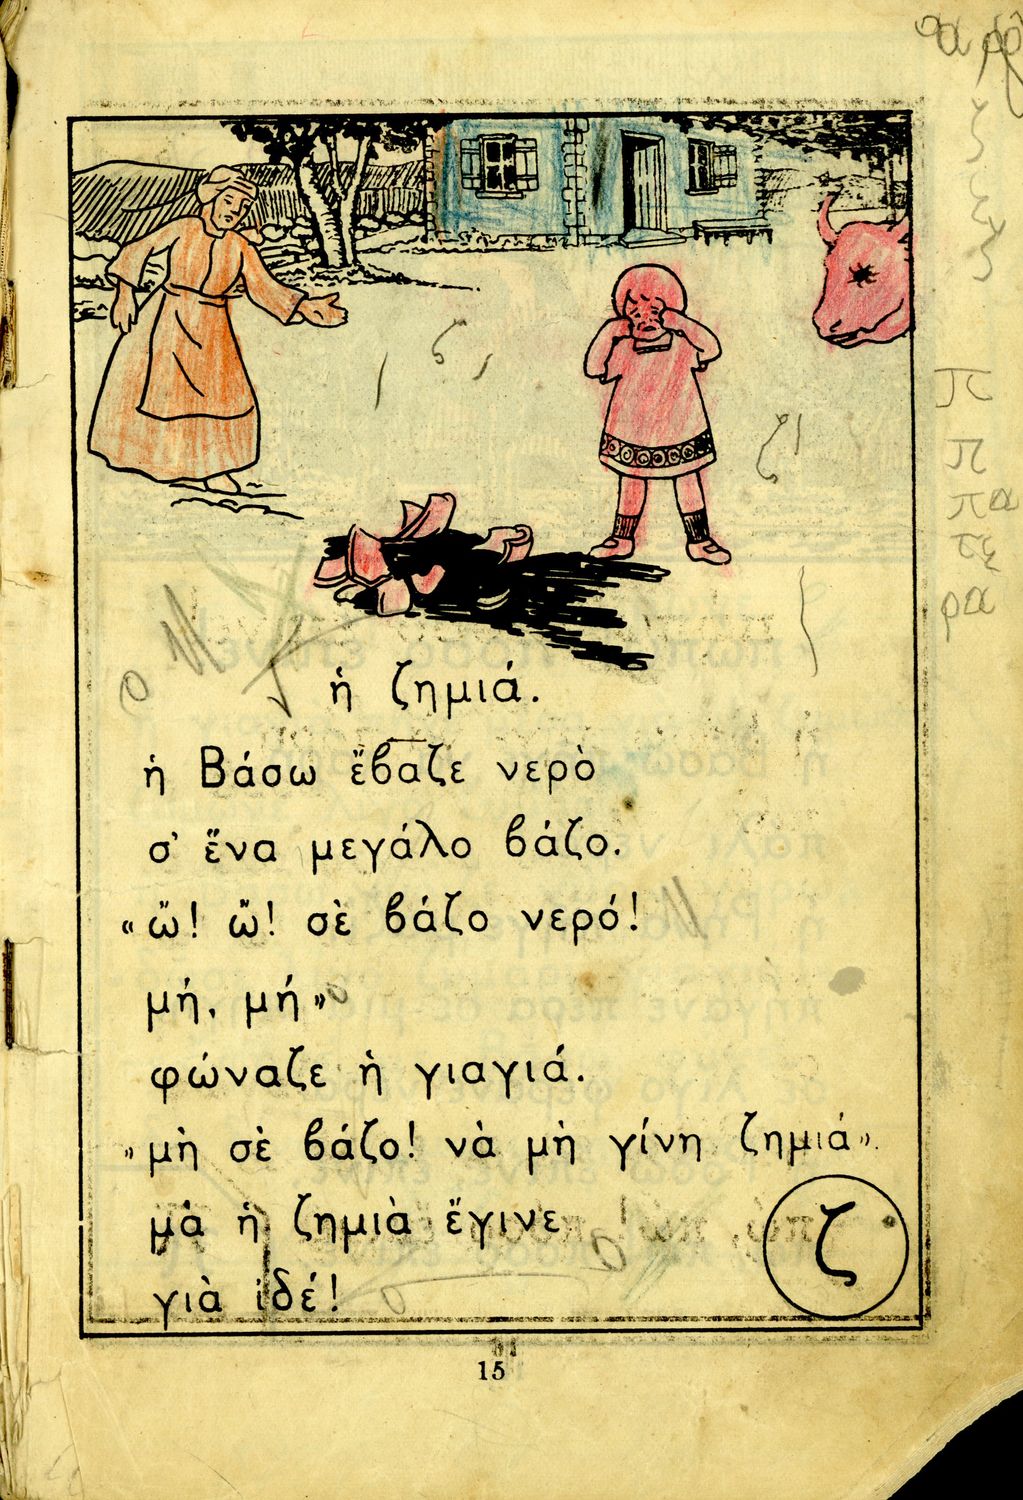 ἡ ζημιά.
ἡ Βάσω ἔβαζε νερὸ
σ' ἕνα μεγάλο βάζο.
«ὤ! ὤ! σὲ βάζο νερό!
μή, μή»
φώναζε ἡ γιαγιά.
»μὴ σὲ βάζο! νὰ μὴ γίνῃ ζημιά».
μὰ ἡ ζημιὰ ἔγινε
γιὰ ἰδέ!
ζ
15
π
π
πα
ρα